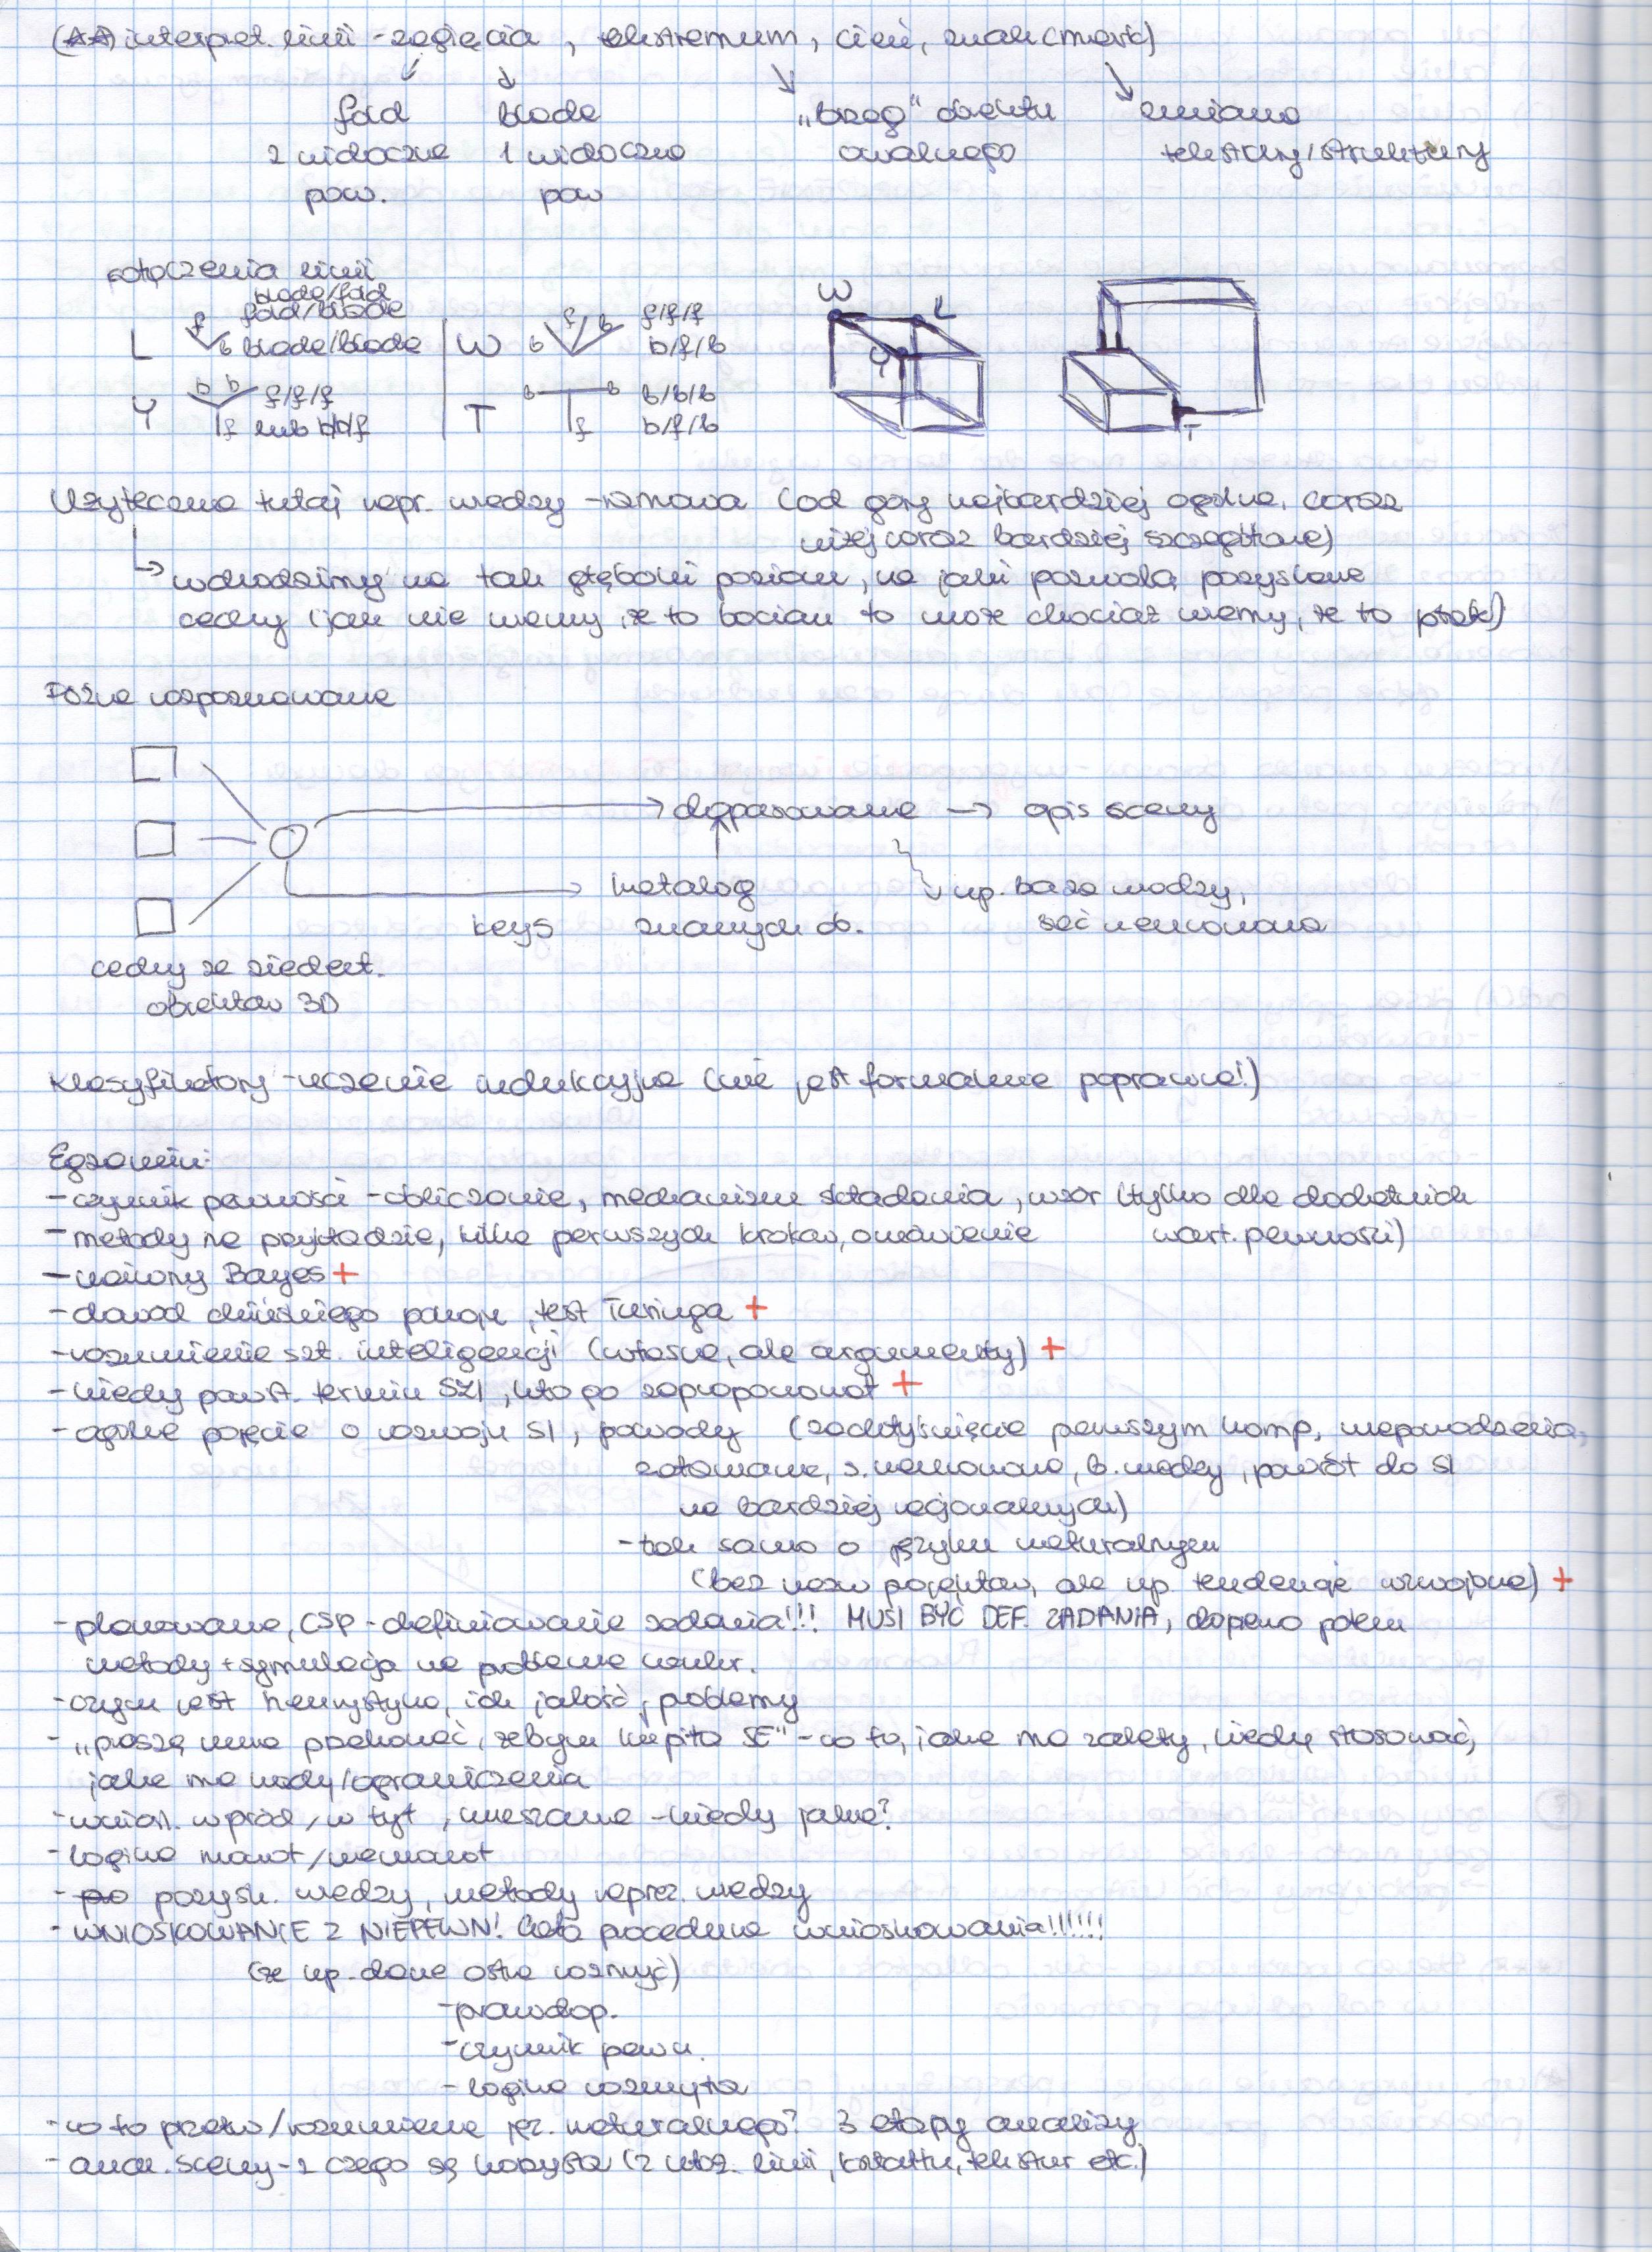 (AA) interpret. linii - zagięcia, ekstremum, cień, znak (mark)
fold blade „brzeg" obiektu zmiana
2 widoczne 1 widoczna owalnego tekstury/struktury
pow. pow
połączenia linii
blade/fold
L f b fold/blade W b f b f/f/f
blade/blade b/f/b
Y b b f f/f/f T b b f b/b/b
lub b/b/f b/f/b
W L Y T
Użyteczna tutaj repr. wiedzy - ramowa (od góry najbardziej ogólne, coraz
niżej coraz bardziej szczegółowe)
wchodzimy na tak głęboki poziom, na jaki pozwolą pozyskane
cechy (jak nie wiemy, że to bocian to może chociaż wiemy, że to ptak)
Późne rozpoznawanie
dopasowanie → opis sceny
katalog np. baza wiedzy,
keys znanych ob. sieć neuronowa
cechy ze zident.
obiektów 3D
Klasyfikatory - uczenie indukcyjne (nie jest formalnie poprawne!)
Egzamin:
- czynnik pewności - obliczanie, mechanizm składania, wzór (tylko dla dodatnich
- metody na przykładzie, kilka pierwszych kroków, omówienie wart. pewności)
- naiwny Bayes +
- dowód chińskiego pokoju, test Turinga +
- rozumienie szt. inteligencji (własne, ale argumenty) +
- kiedy powst. termin SZI, kto go zaproponował +
- ogólne pojęcie o rozwoju SI, powody (zachłyśnięcie pierwszym komp, niepowodzenia,
załamanie, s. neuronowe, b. wiedzy, powrót do SI
na bardziej racjonalnych)
- tak samo o języku naturalnym
(bez nazw projektów, ale np. tendencje rozwojowe) +
- planowanie, CSP - definiowanie zadania!!! MUSI BYĆ DEF. ZADANIA, dopiero potem
metody + symulacja na problemie konkr.
- czym jest heurystyka, ich jakość, problemy
- „proszę mnie przekonać, żebym kupiła SE" - co to, jakie ma zalety, kiedy stosować,
jakie ma wady/ograniczenia
- wniosk. w przód/w tył, mieszane - kiedy jakie?
- logika monot/niemonot
- pozysk. wiedzy, metody reprez. wiedzy
- WNIOSKOWANIE Z NIEPEWN! Cała procedura wnioskowania!!!!!!
(że np. dane ostre rozmyć)
- prawdop.
- czynnik pewn.
- logika rozmyta
- co to przetw/rozumienie jęz. naturalnego? 3 etapy analizy
- anal. sceny - z czego się korzysta (z ułoż. linii, kształtu, tekstur etc.)